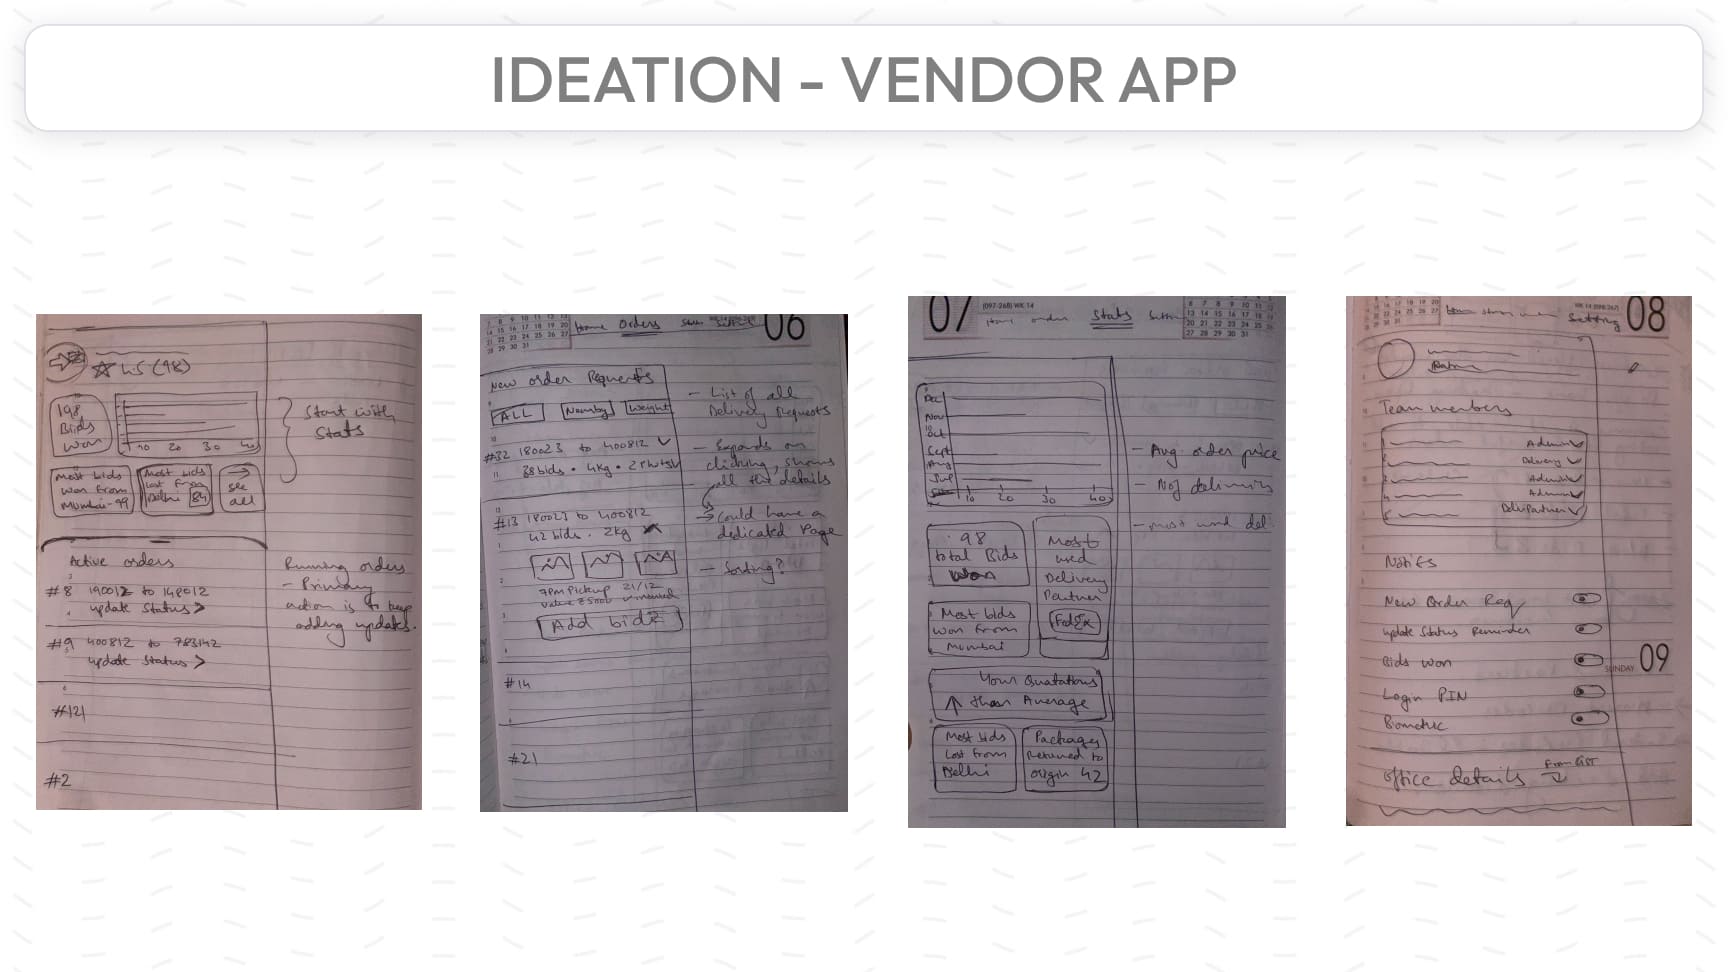 IDEATION - VENDOR APP
4.5 (98)
198
Bids
won
10 20 30 40
Most bids
won from
Mumbai-99
Most bids
lost from
Delhi 84
see
all
Start with
Stats
Active orders
#8 190012 to 148012
update Status >
#9 400812 to 783142
update Status >
#121
#2
Running orders
- Primary
action is to keep
adding updates.
06
Home Orders
New order Requests
ALL Nearby Weight
#32 180023 to 400812
38 bids • 4kg •
#13 180023 to 400812
42 bids • 2kg
7pm Pickup 21/12
Value ₹5000
Add bid
#14
#21
- List of all
Delivery Requests
- Expands on
clicking, shows
all the details
→ Could have a
dedicated Page
- Sorting?
07
(097-268) WK 14
Home order Stats
Dec
Nov
Oct
Sept
Aug
10 20 30 40
98
total Bids
Won
Most
used
Delivery
Partner
FedEx
Most bids
won from
Mumbai
Your Quotations
↑ than Average
Most bids
Lost from
Delhi
Packages
Returned to
origin 42
- Avg. order price
- No of deliveries
- most used del
08
Setting
Team members
Admin
Delivery
Admin
Admin
Notifs
New Order Req
update Status Reminder
Bids won
SUNDAY 09
Login PIN
Biometric
office details
From GST